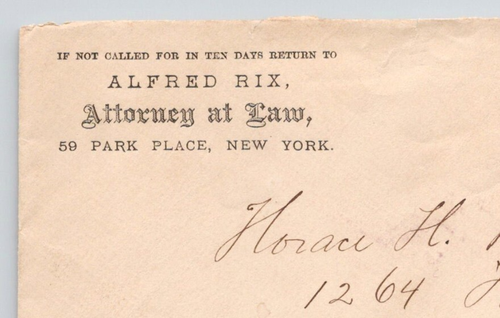 IF NOT CALLED FOR IN TEN DAYS RETURN TO
ALFRED RIX,
Attorney at Law,
59 PARK PLACE, NEW YORK.
Horace H.
1264